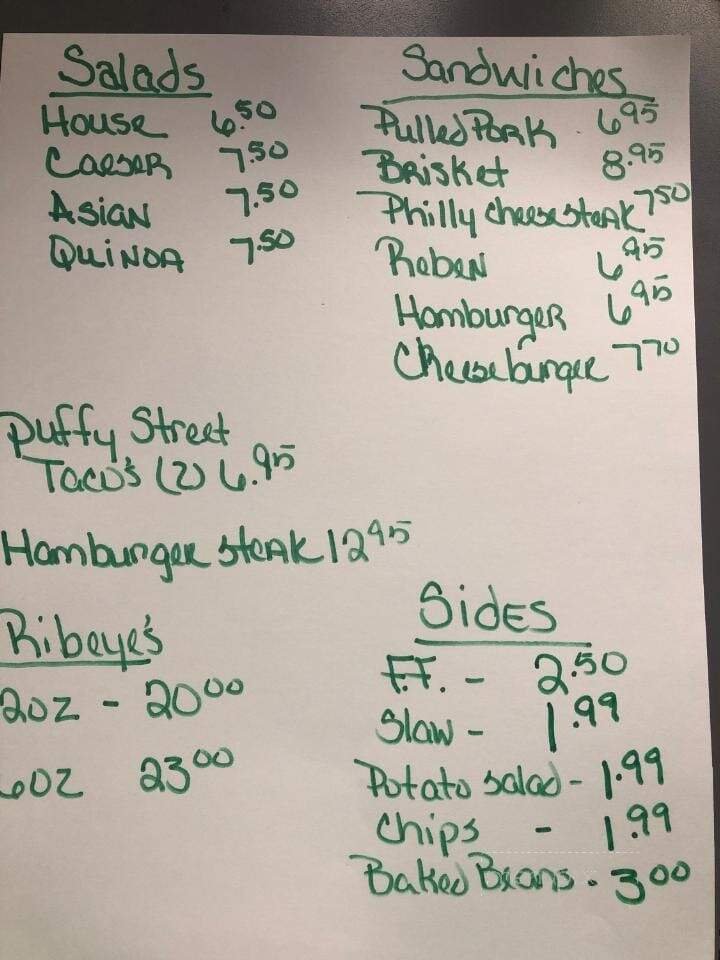 Salads
House 6.50
Caeser 7.50
Asian 7.50
Quinoa 7.50
Sandwiches
Pulled Pork 6.95
Brisket 8.95
Philly cheese steak 7.50
Reben 6.95
Hamburger 6.95
Cheeseburger 7.70
Puffy Street
Taco's (2) 6.95
Hamburger steak 12.95
Ribeye's
2oz - 20.00
6oz 23.00
Sides
F.F. - 2.50
Slaw - 1.99
Potato salad - 1.99
Chips - 1.99
Baked Beans. 3.00